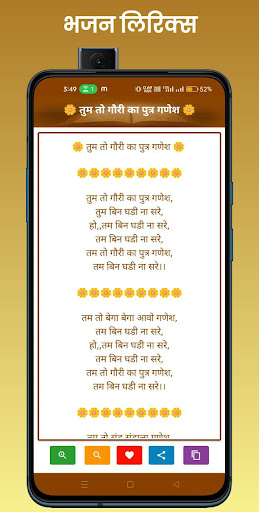 भजन लिरिक्स
3:49 1 m 52%
🌼 तुम तो गौरी का पुत्र गणेश 🌼
🌼 तुम तो गौरी का पुत्र गणेश 🌼
🌼🌼🌼🌼🌼🌼🌼
तुम तो गौरी का पुत्र गणेश,
तुम बिन घडी ना सरे,
हो,,तम बिन घडी ना सरे,
तम तो गौरी का पुत्र गणेश,
तम बिन घडी ना सरे।।
🌼🌼🌼🌼🌼🌼🌼
तम तो बेगा बेगा आवो गणेश,
तम बिन घडी ना सरे,
हो,,तम बिन घडी ना सरे,
तम तो गौरी का पुत्र गणेश,
तम बिन घडी ना सरे।।
🌼🌼🌼🌼🌼🌼🌼